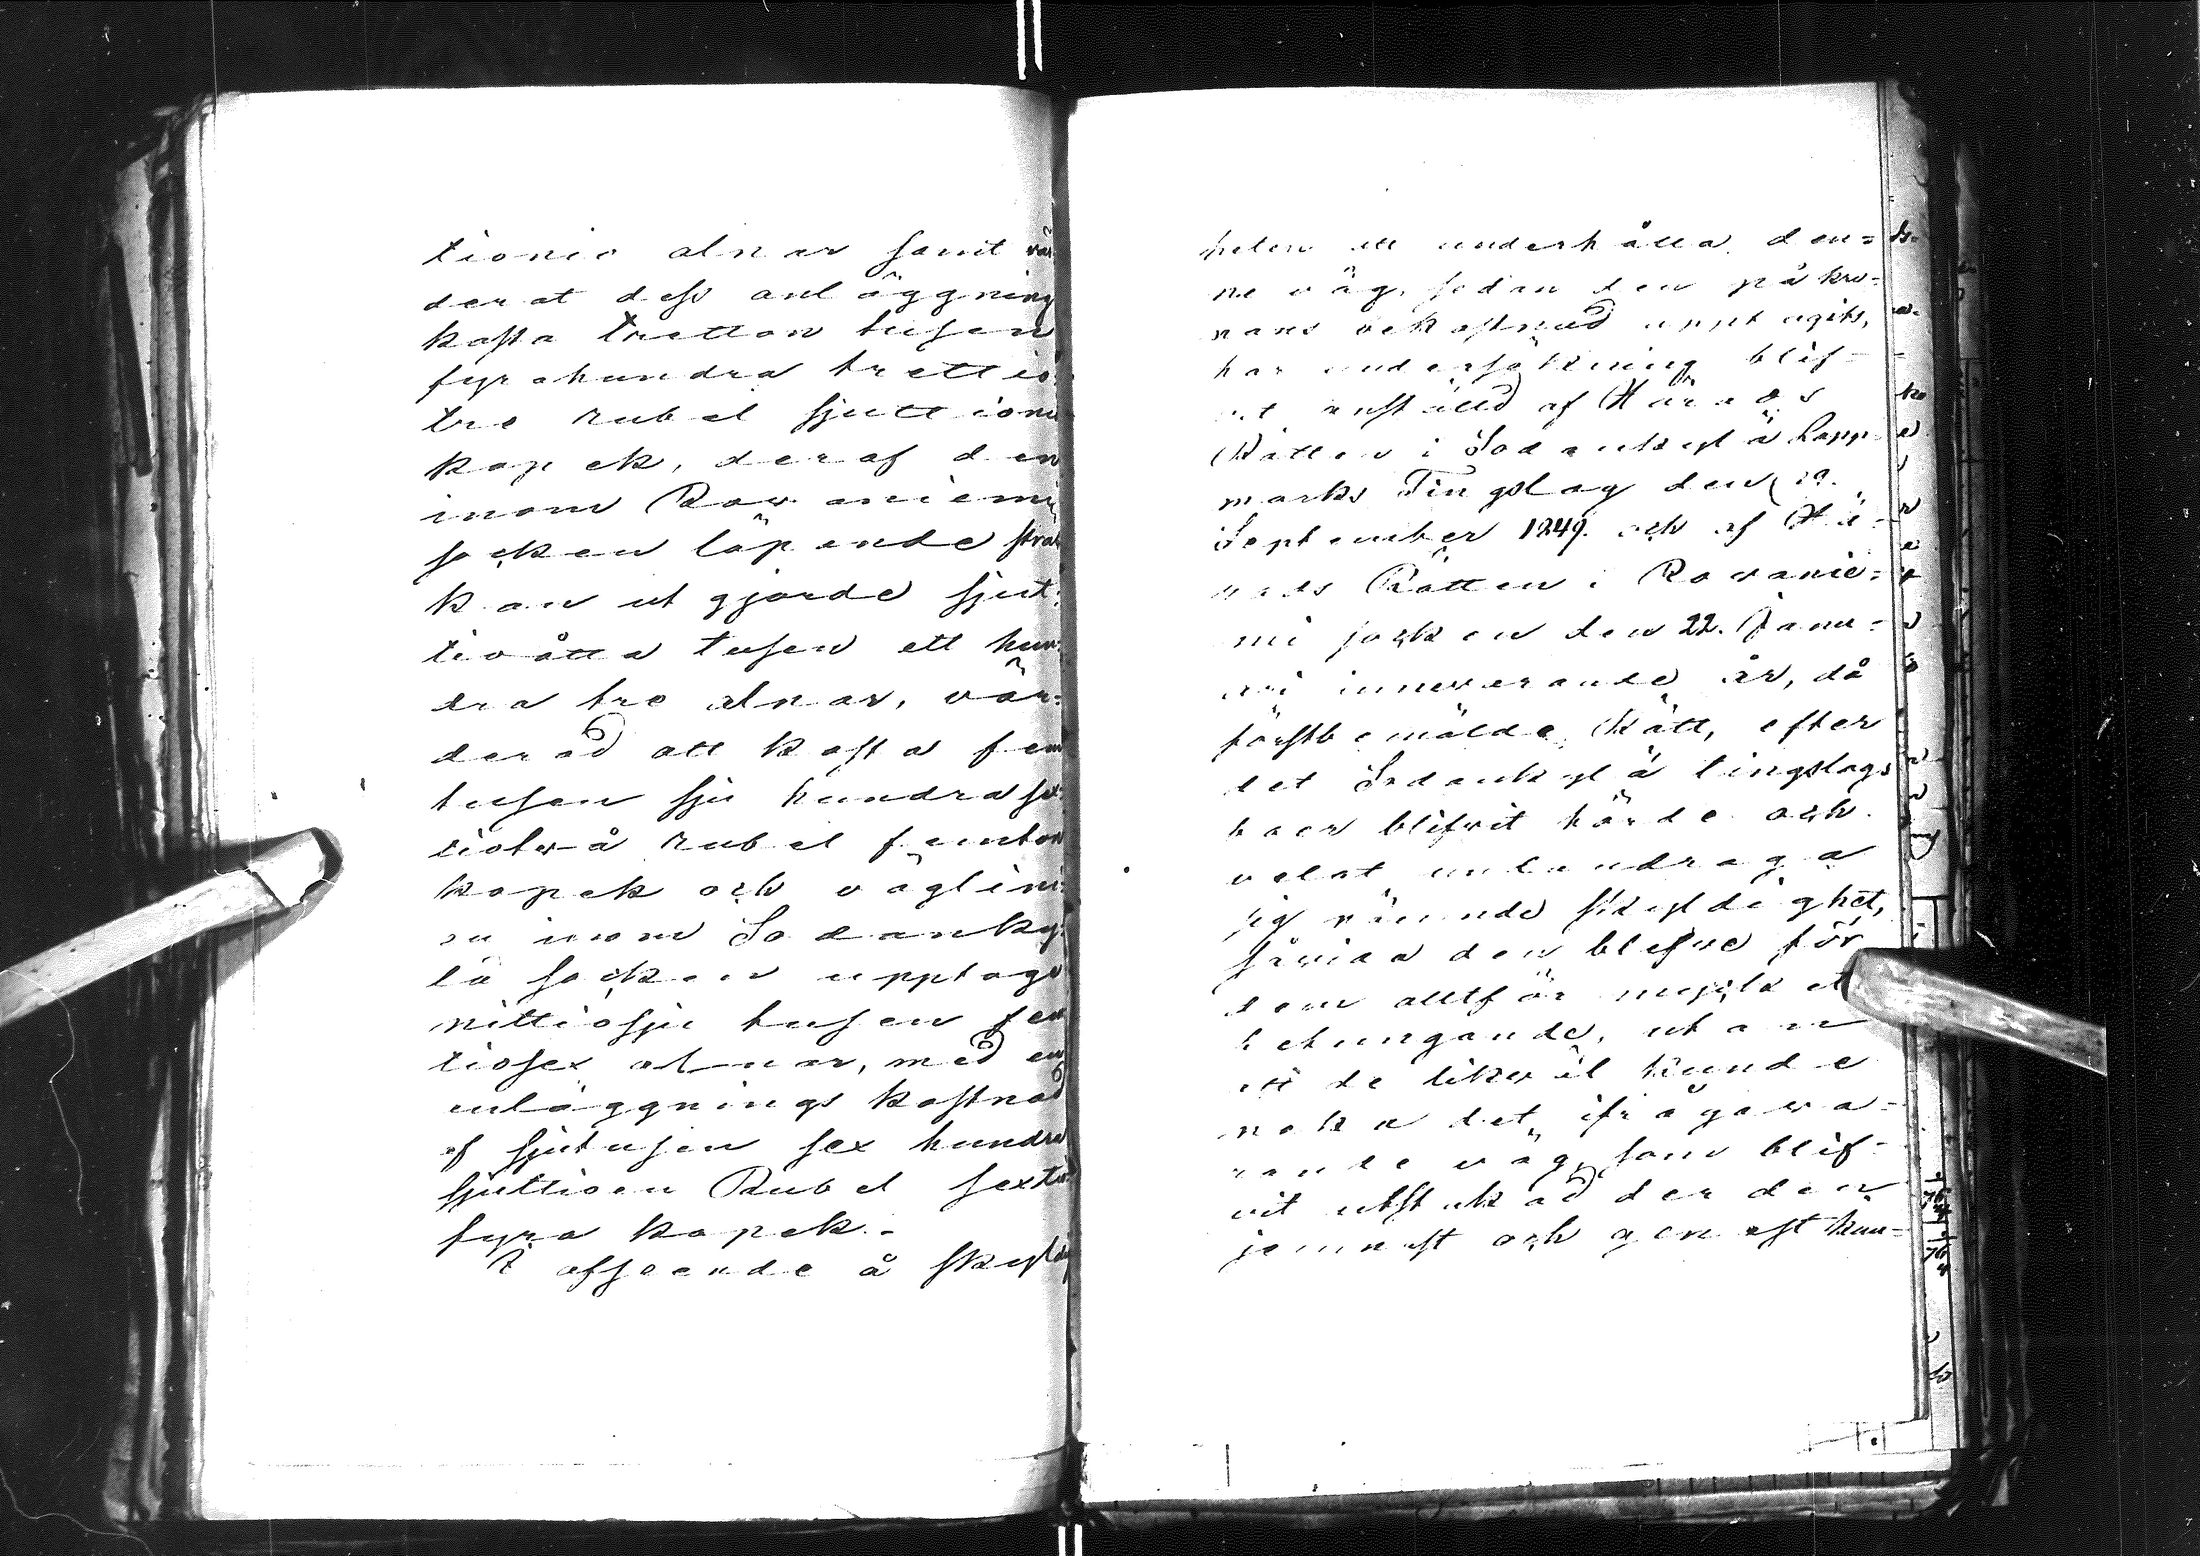 tionio alnar samt vär
derat dess anläggning
kosta tretton tusen
fyrahundra trettio
tre rubel sjuttionio
kopek, deraf den
inom Rovaniemi
socken löpande strä
kan utgjorde sjut:
tioåtta tusen ett hun:
dra tre alnar, vär:
derad att kosta fem
tusen sju hundra sex:
tiotvå rubel femton
kopek och väglini:
en inom Sodanky:
lä socken upptage
nittiosju tusen fem
tiosex alnar, med en
anläggnings kostnad
af sjutusen sex hundra
sjuttioen Rubel sextio
fyra kopek.-
I afseende å skyldig
heten att underhålla den=
ne väg, sedan den på kro=
nans bekostnad upptagits,
har undersökning blif=
vit anställd af Härads
Rätten i Sodankylä Lapp
marks Tingslag den
September 1849. och af Hä=
rads Rätten i Rovanie=
mi socken den 22. Janu=
ari innevarande år, då
förstbemälde Rätt, efter
det Sodankylä tingslags
boer blifvit hörde och
velat undandraga
sig nämnde skyldighet,
såsom den blefve för
dem alltför mycket
betungande, utan
att de likväl kunde
neka det ifrågava=
rande väg, som blif=
vit utstakad der den
jemnast och genast kun=